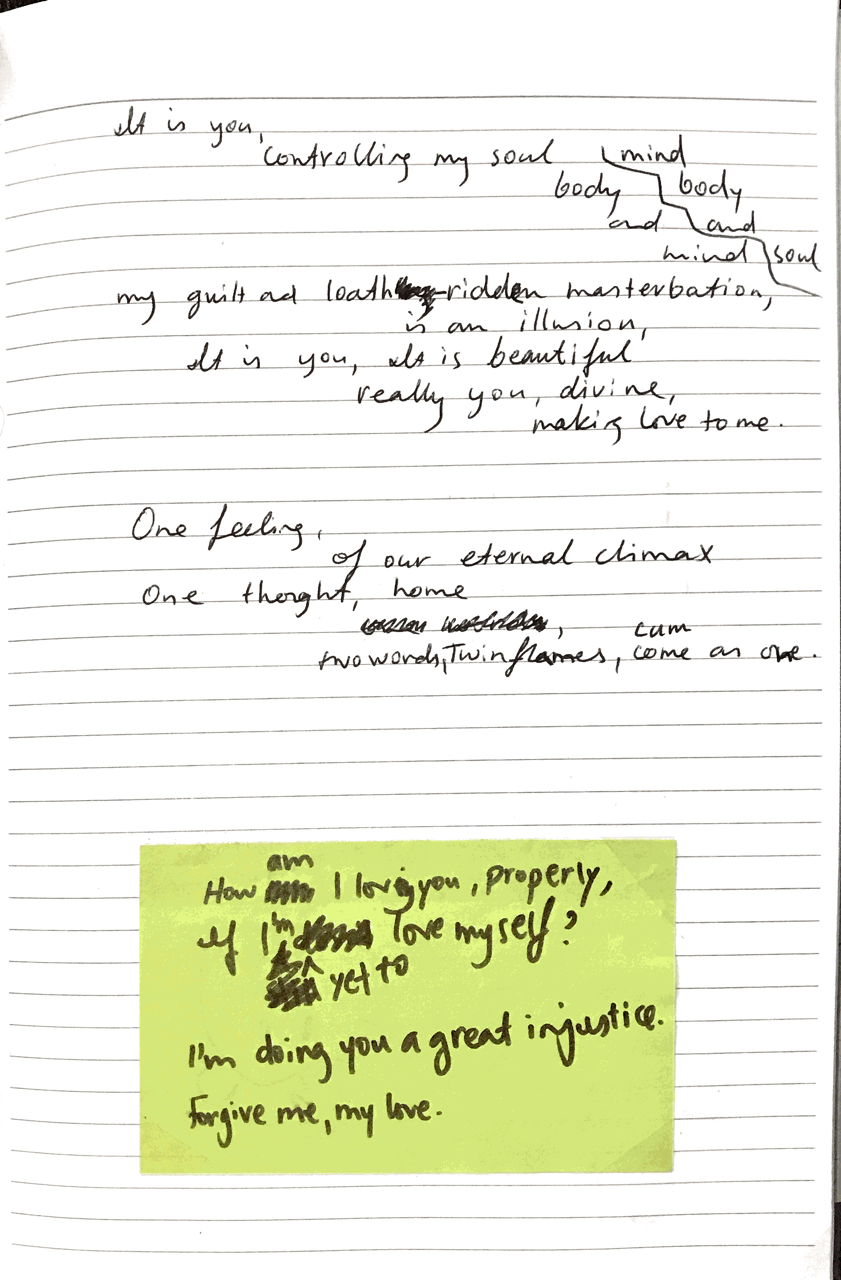 It is you,
controlling my soul mind
body body
and and
mind soul
my guilt ad loath-ridden masterbation,
is an illusion,
It is you, It is beautiful
really you, divine,
making love to me.
One feeling,
of our eternal climax
One thought, home
cum
two words, Twin flames, come as one.
am
How I loving you, properly,
If I'm love myself?
yet to
I'm doing you a great injustice.
Forgive me, my love.